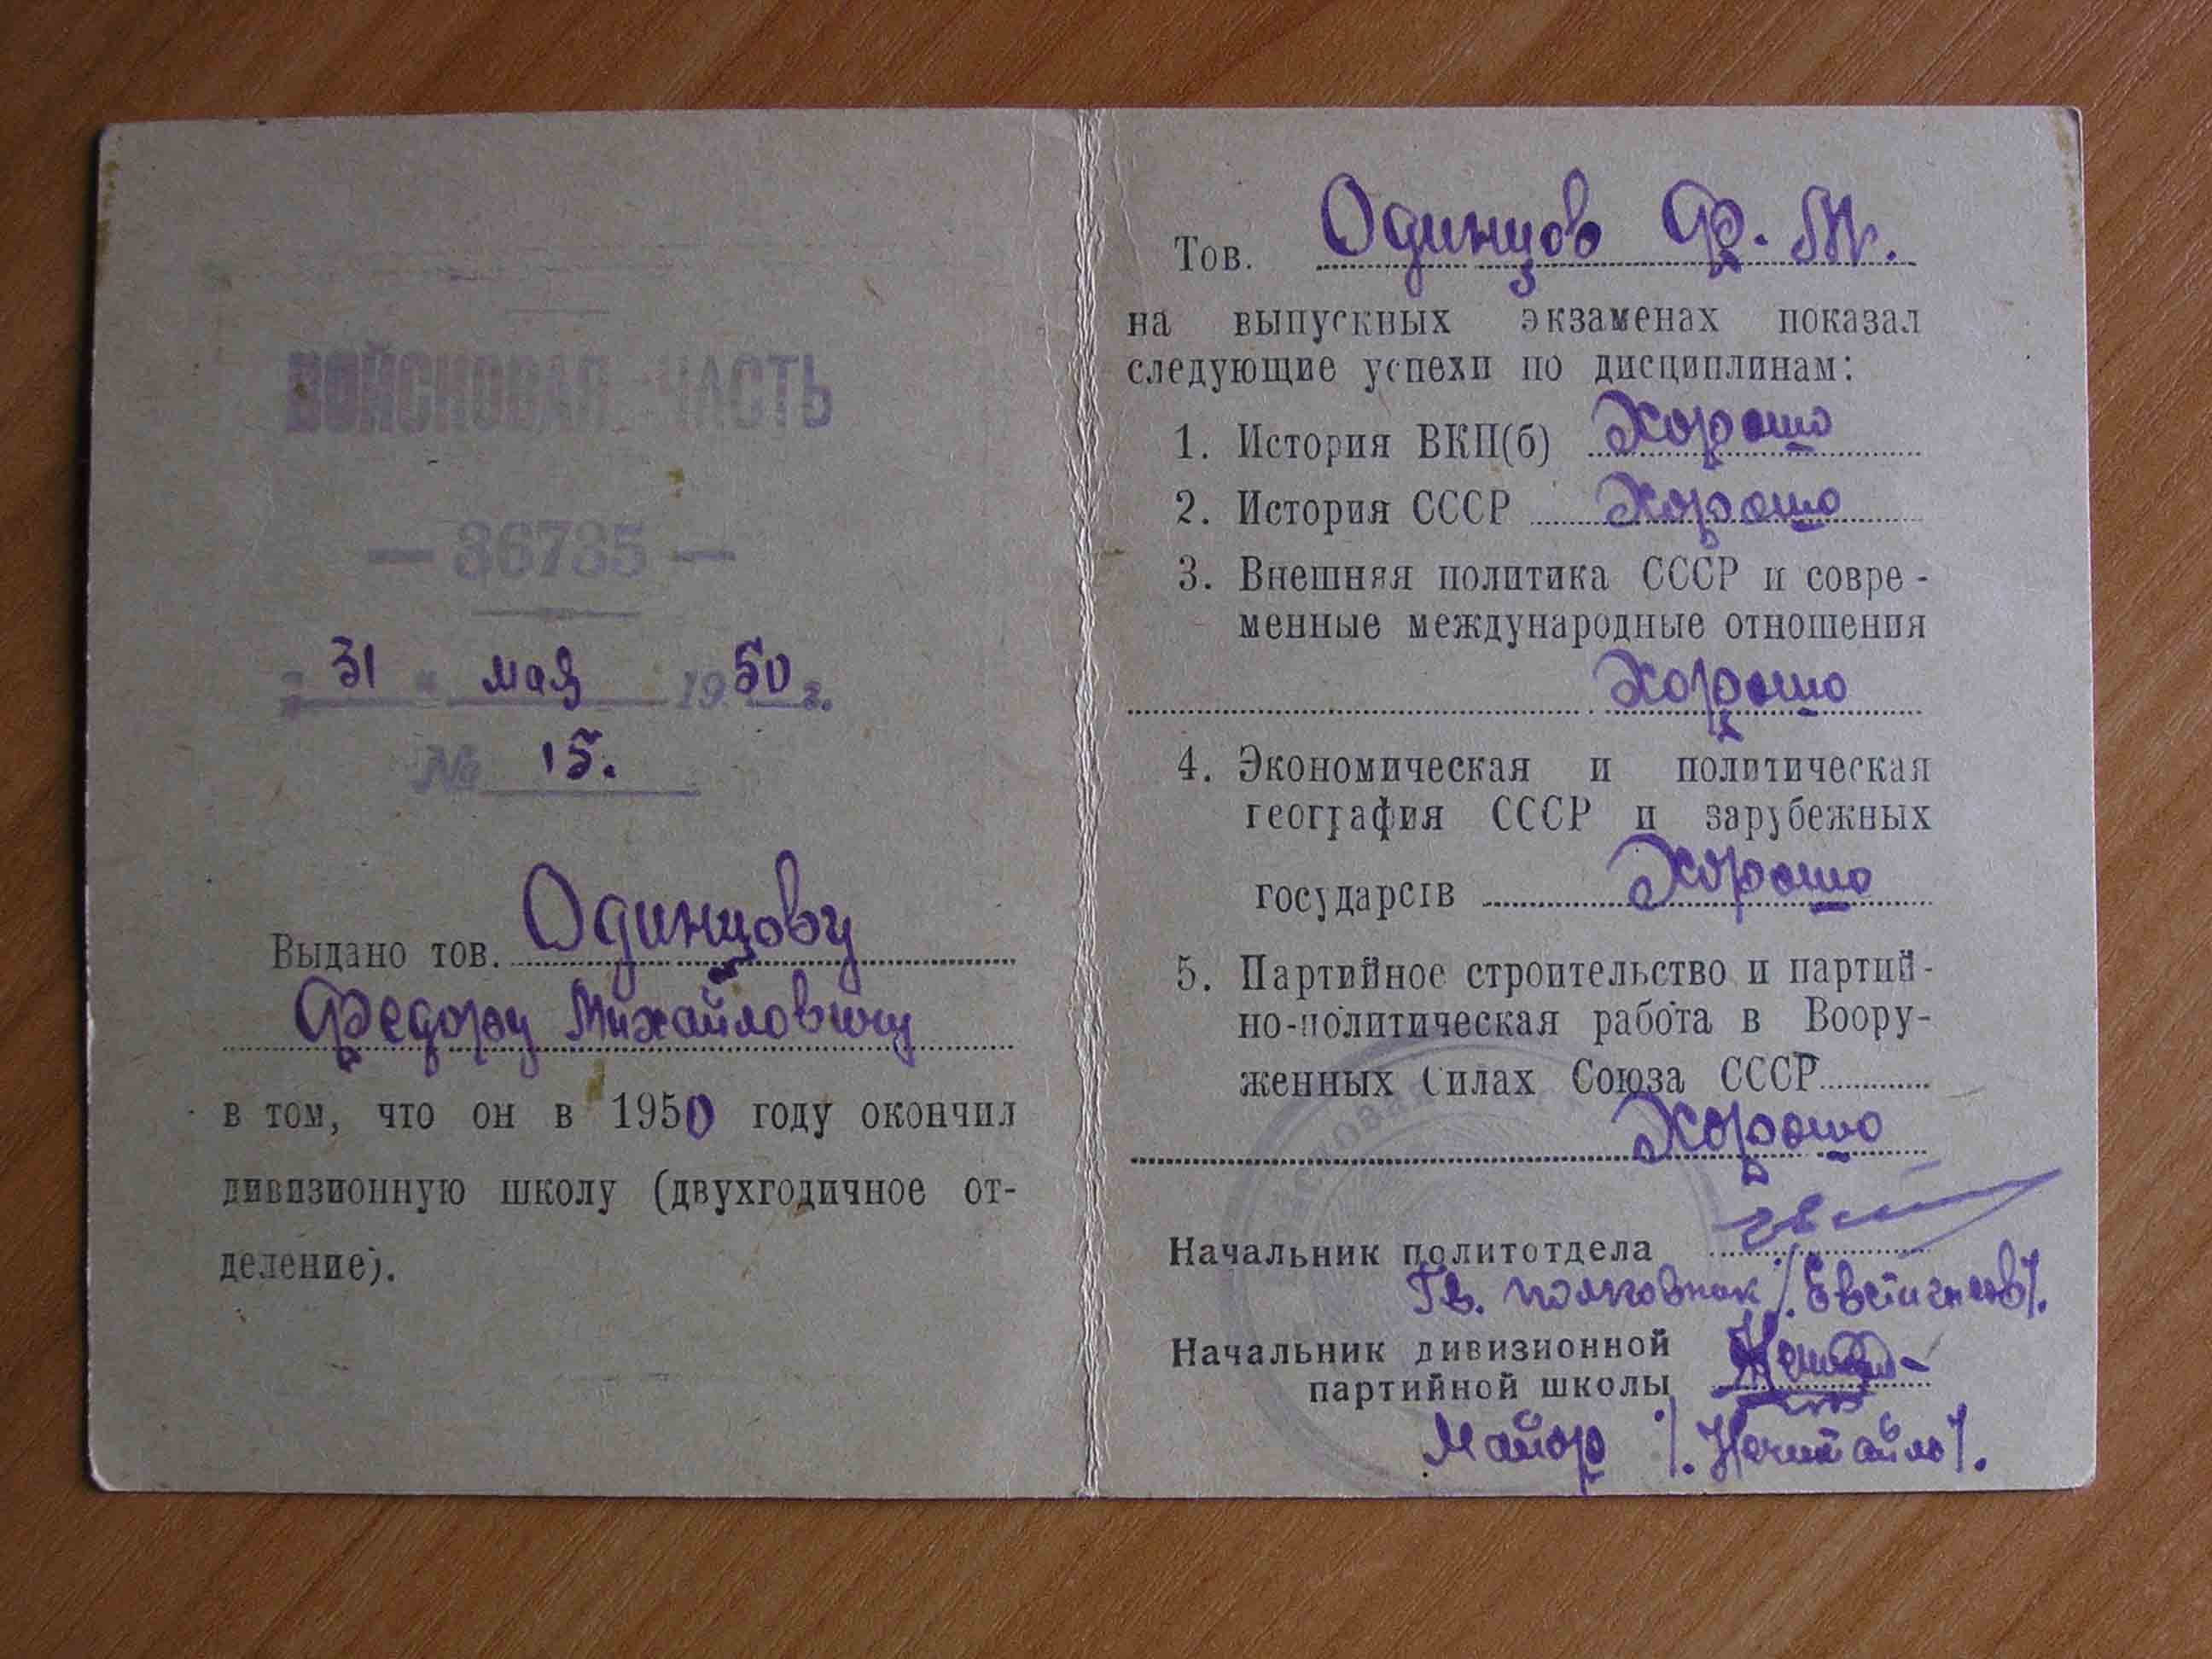 ВОЙСКОВАЯ ЧАСТЬ
— 36735 —
„ 31 " мая 1950 г.
№ 15.
Выдано тов. Одинцову
Федору Михайловичу
в том, что он в 1950 году окончил
дивизионную школу (двухгодичное от-
деление).
Тов. Одинцов Ф. М.
на выпускных экзаменах показал
следующие успехи по дисциплинам:
1. История ВКП(б) Хорошо
2. История СССР Хорошо
3. Внешняя политика СССР и совре-
менные международные отношения
Хорошо
4. Экономическая и политическая
география СССР и зарубежных
государств Хорошо
5. Партийное строительство и партий-
но-политическая работа в Воору-
женных Силах Союза СССР
Хорошо
Начальник политотдела
Гв. полковник /.Евстигнеев/.
Начальник дивизионной
партийной школы
Майор /.Нечитайло/.